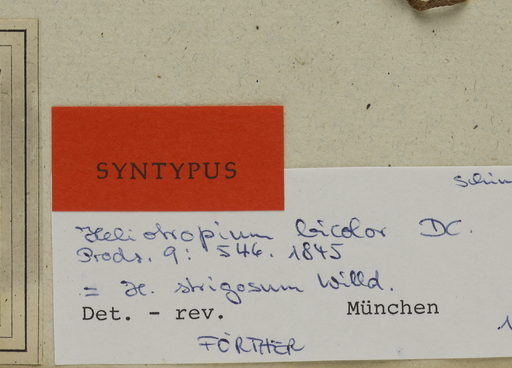 SYNTYPUS
Schim
Heliotropium bicolor DC.
Prodr. 9: 546. 1845
= H. strigosum Willd.
Det. - rev. München
FÖRTHER